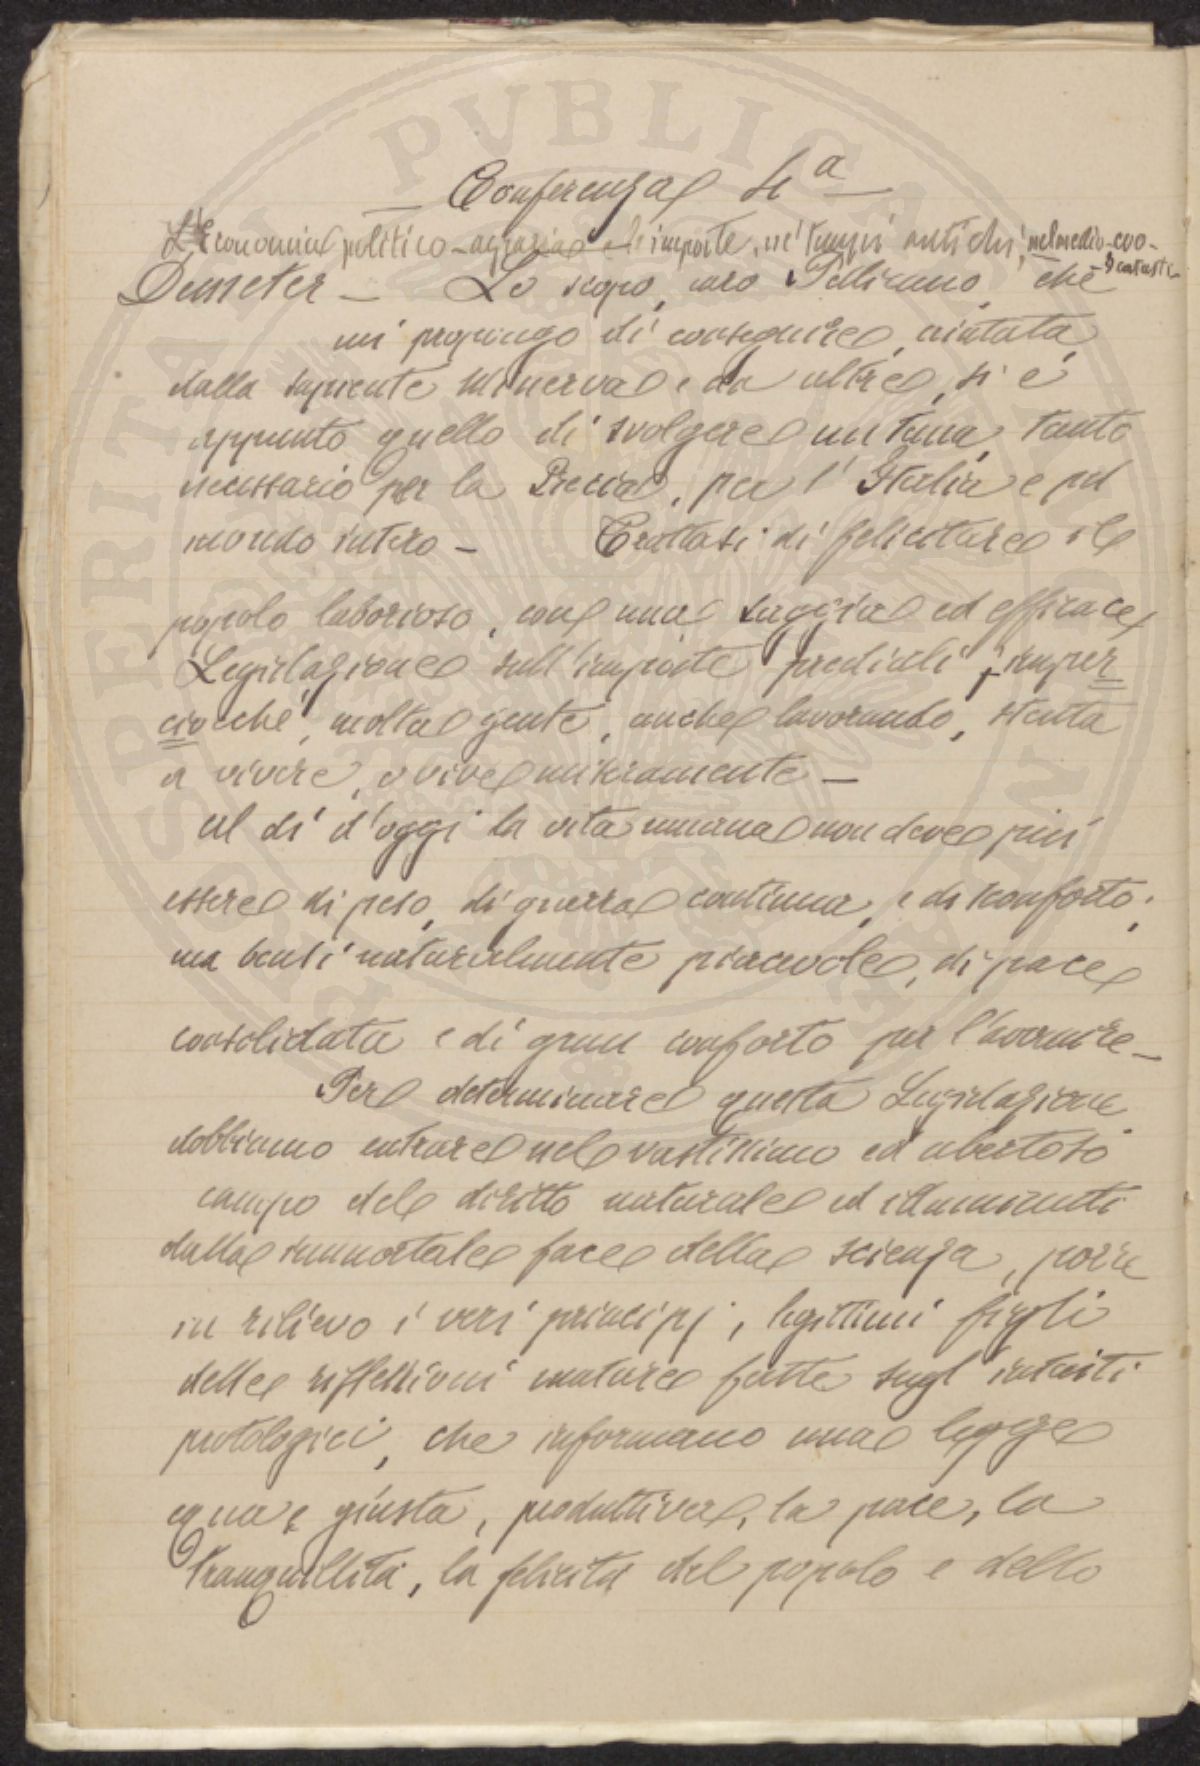 Conferenza 4ª
L'Economia politico-agraria e le imposte, ne' tempi antichi, nel medio-evo-
Demeter – Lo scopo, caro Pellicano, che
mi propongo di conseguire, aiutata
dalla sapiente Minerva e da altre, si è
appunto quello di svolgere un tema, tanto
necessario per la Grecia, per l'Italia e pel
mondo intero – Trattasi di felicitare il
popolo laborioso, con una saggia ed efficace
Legislazione sull'imposte prediali; imper
ciocchè, molta gente, anche lavorando, stenta
a vivere, o vive miseramente –
Al dì d'oggi la vita umana non deve più
essere di peso, di guerra continua, e di sconforto;
ma bensì naturalmente piacevole, di pace
consolidata e di gran conforto per l'avvenire –
Per determinare questa Legislazione
dobbiamo entrare nel vastissimo ed ubertoso
campo del diritto naturale ed illuminati
dalla immortale face della scienza, porre
in rilievo i veri principj, legittimi figli
delle riflessioni mature fatte sugl'intuiti
protologici, che informano una legge
equa e giusta, produttiva, la pace, la
tranquillità, la felicità del popolo e dello
PVBLICA